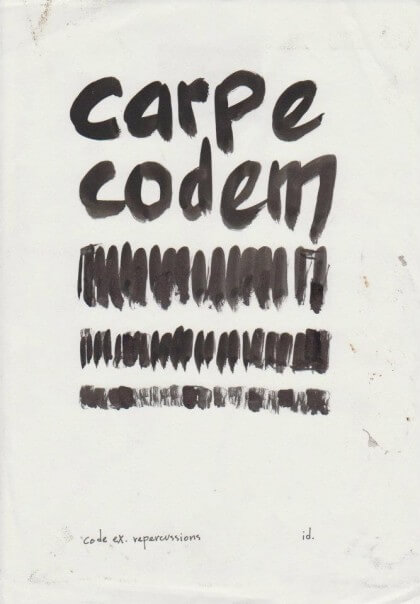 carpe
codem
code ex. repercussions
id.